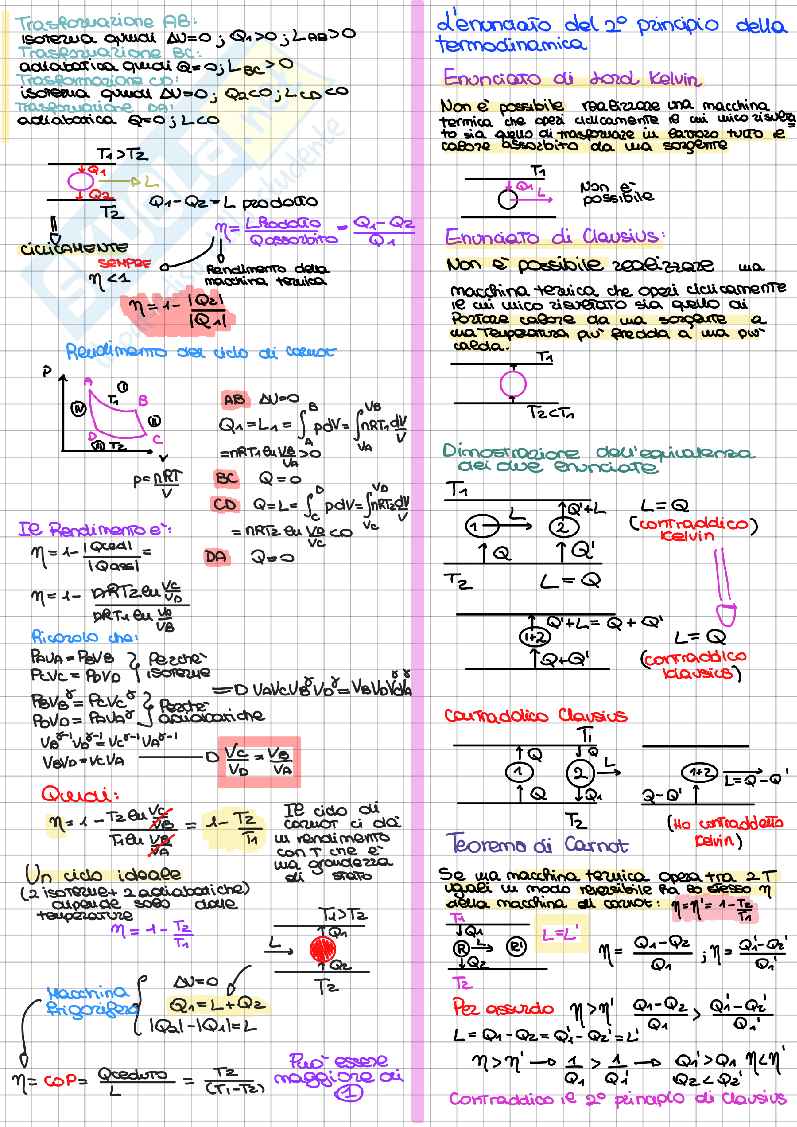 Trasformazione AB:
isoterma quindi ΔU=0; Q1>0; LAB>0
Trasformazione BC:
adiabatica quindi Q=0; LBC>0
Trasformazione CD:
isoterma quindi ΔU=0; Q2<0; LCD<0
Trasformazione DA:
adiabatica Q=0; L<0
T1>T2
Q1
L
Q2
T2
Q1-Q2=L prodotto
CICLICAMENTE
η = L Prodotto / Q assorbito = Q1-Q2 / Q1
SEMPRE
η<1
Rendimento della
macchina termica
η=1- |Q2| / |Q1|
Rendimento del ciclo di carnot
P
A
I
T1
B
IV
II
D
C
III
T2
V
p= nRT / V
AB ΔU=0
Q1=L1= ∫A^B pdV= ∫VA^VB nRT1 dV/V
=nRT1 ln VB/VA >0
BC Q=0
CD Q=L= ∫C^D pdV= ∫VC^VD nRT2 dV/V
= nRT2 ln VD/VC <0
DA Q=0
Il Rendimento è:
η= 1- |Qced| / |Qass| =
η= 1- nRT2 ln VC/VD / nRT1 ln VB/VB
Ricordo che:
PAVA = PBVB
PCVC = PDVD
Perche'
isoterme
PBVB^γ = PCVC^γ
PDVD = PAVA^γ
Perche
adiabatiche
=D VAVCVB^γVD^γ=VBVDVC^γVA^γ
VB^γ-1 VD^γ-1 = VC^γ-1 VA^γ-1
VBVD=VCVA
D VC/VD = VB/VA
Quindi:
η= 1- T2 ln VC/VB / T1 ln VB/VA = 1- T2/T1
Il ciclo di
carnot ci dà
un rendimento
con T che è
una grandezza
di stato
Un ciclo ideale
(2 isoterme + 2 adiabatiche)
dipende solo dalle
temperature
η= 1- T2/T1
T1>T2
Q1
L
Q2
T2
Macchina
frigorifera
ΔU=0
Q1=L+Q2
|Q2|-|Q1|=L
η= COP= Qceduto / L = T2 / (T1-T2)
Può essere
maggiore di
1
L'enunciato del 2° principio della
termodinamica
Enunciato di Lord Kelvin
Non e' possibile realizzare una macchina
termica che operi ciclicamente il cui unico risulta=
to sia quello di trasformare in lavoro tutto il
calore assorbito da una sorgente
T1
Q1
L
Non è
possibile
Enunciato di Clausius:
Non è possibile realizzare una
macchina termica che operi ciclicamente
il cui unico risultato sia quello di
portare calore da una sorgente a
una Temperatura più fredda a una più
calda.
T1
T2<T1
Dimostrazione dell'equivalenza
dei due enunciati
T1
L
Q'+L
1
2
Q
Q'
T2
L=Q
L=Q
(contraddico
Kelvin)
Q'+L= Q + Q'
1+2
Q+Q'
L=Q
(contraddico
Klausius)
Contraddico Clausius
T1
Q
Q
L
1
2
Q
Q1
T2
1+2
L=Q-Q'
Q-Q'
(Ho contraddetto
Kelvin)
Teorema di Carnot
Se una macchina termica opera tra 2 T
uguali in modo reversibile ha lo stesso η
della macchina di carnot: η=η'= 1- T2/T1
T1
Q1
R
L
R'
Q2
T2
L=L'
η= Q1-Q2 / Q1 ; η= Q1'-Q2' / Q1'
Per assurdo η>η' Q1-Q2 / Q1 > Q1'-Q2' / Q1'
L= Q1-Q2 = Q1'-Q2' = L'
η>η' → 1/Q1 > 1/Q1' → Q1'>Q1 η<η'
Q2<Q2'
Contraddico il 2° principio di Clausius